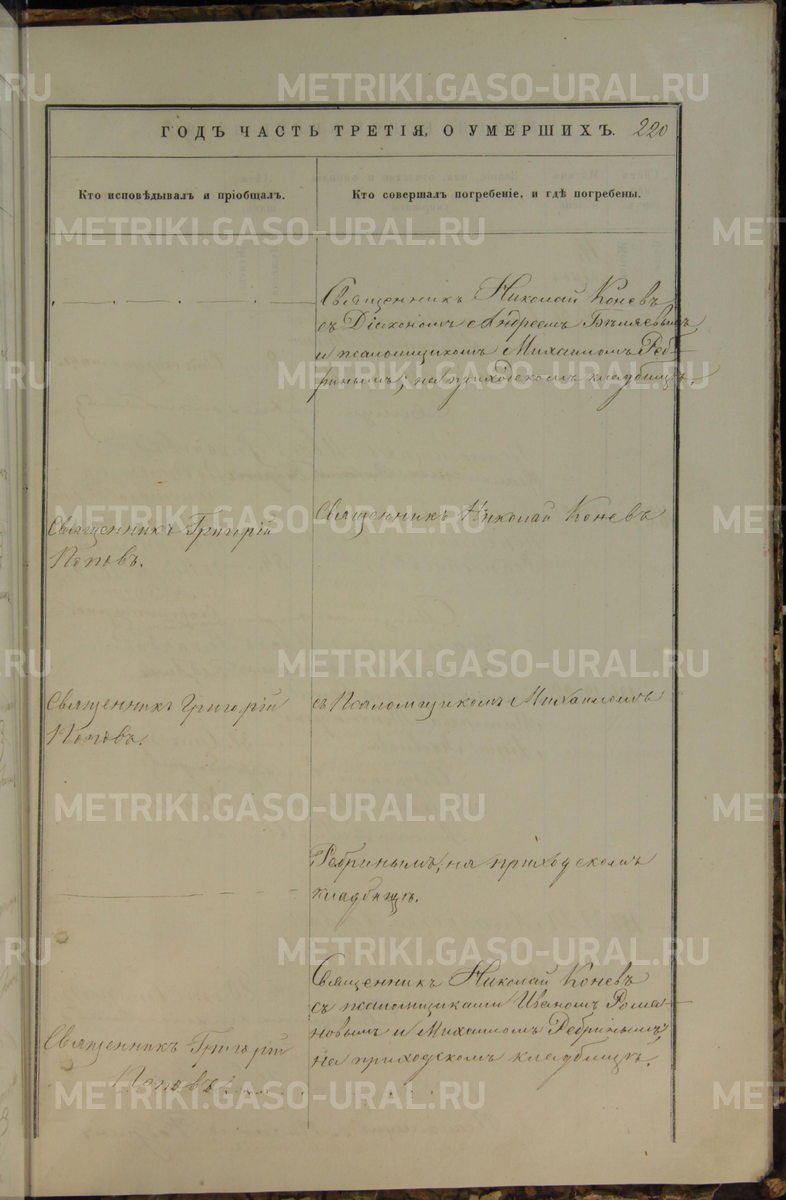 ГОДЪ ЧАСТЬ ТРЕТІЯ, О УМЕРШИХЪ. 220
Кто исповѣдывалъ и пріобщалъ.
Кто совершалъ погребеніе, и гдѣ погребены.
Священникъ Николай Коневъ
съ Діакономъ Андреемъ Бѣляевымъ
и псаломщикомъ Михаиломъ Реб-
ринымъ; на приходскомъ кладбищѣ.
Священникъ Григорій
Поповъ.
Священникъ Николай Коневъ
Священникъ Григорій
Поповъ.
съ Псаломщикомъ Михаиломъ
Ребринымъ, на приходскомъ
кладбищѣ.
Священникъ Григорій
Поповъ.
Священникъ Николай Коневъ
съ псаломщиками Иваномъ Рома-
новымъ и Михаиломъ Ребринымъ
на приходскомъ кладбищѣ.
METRIKI.GASO-URAL.RU